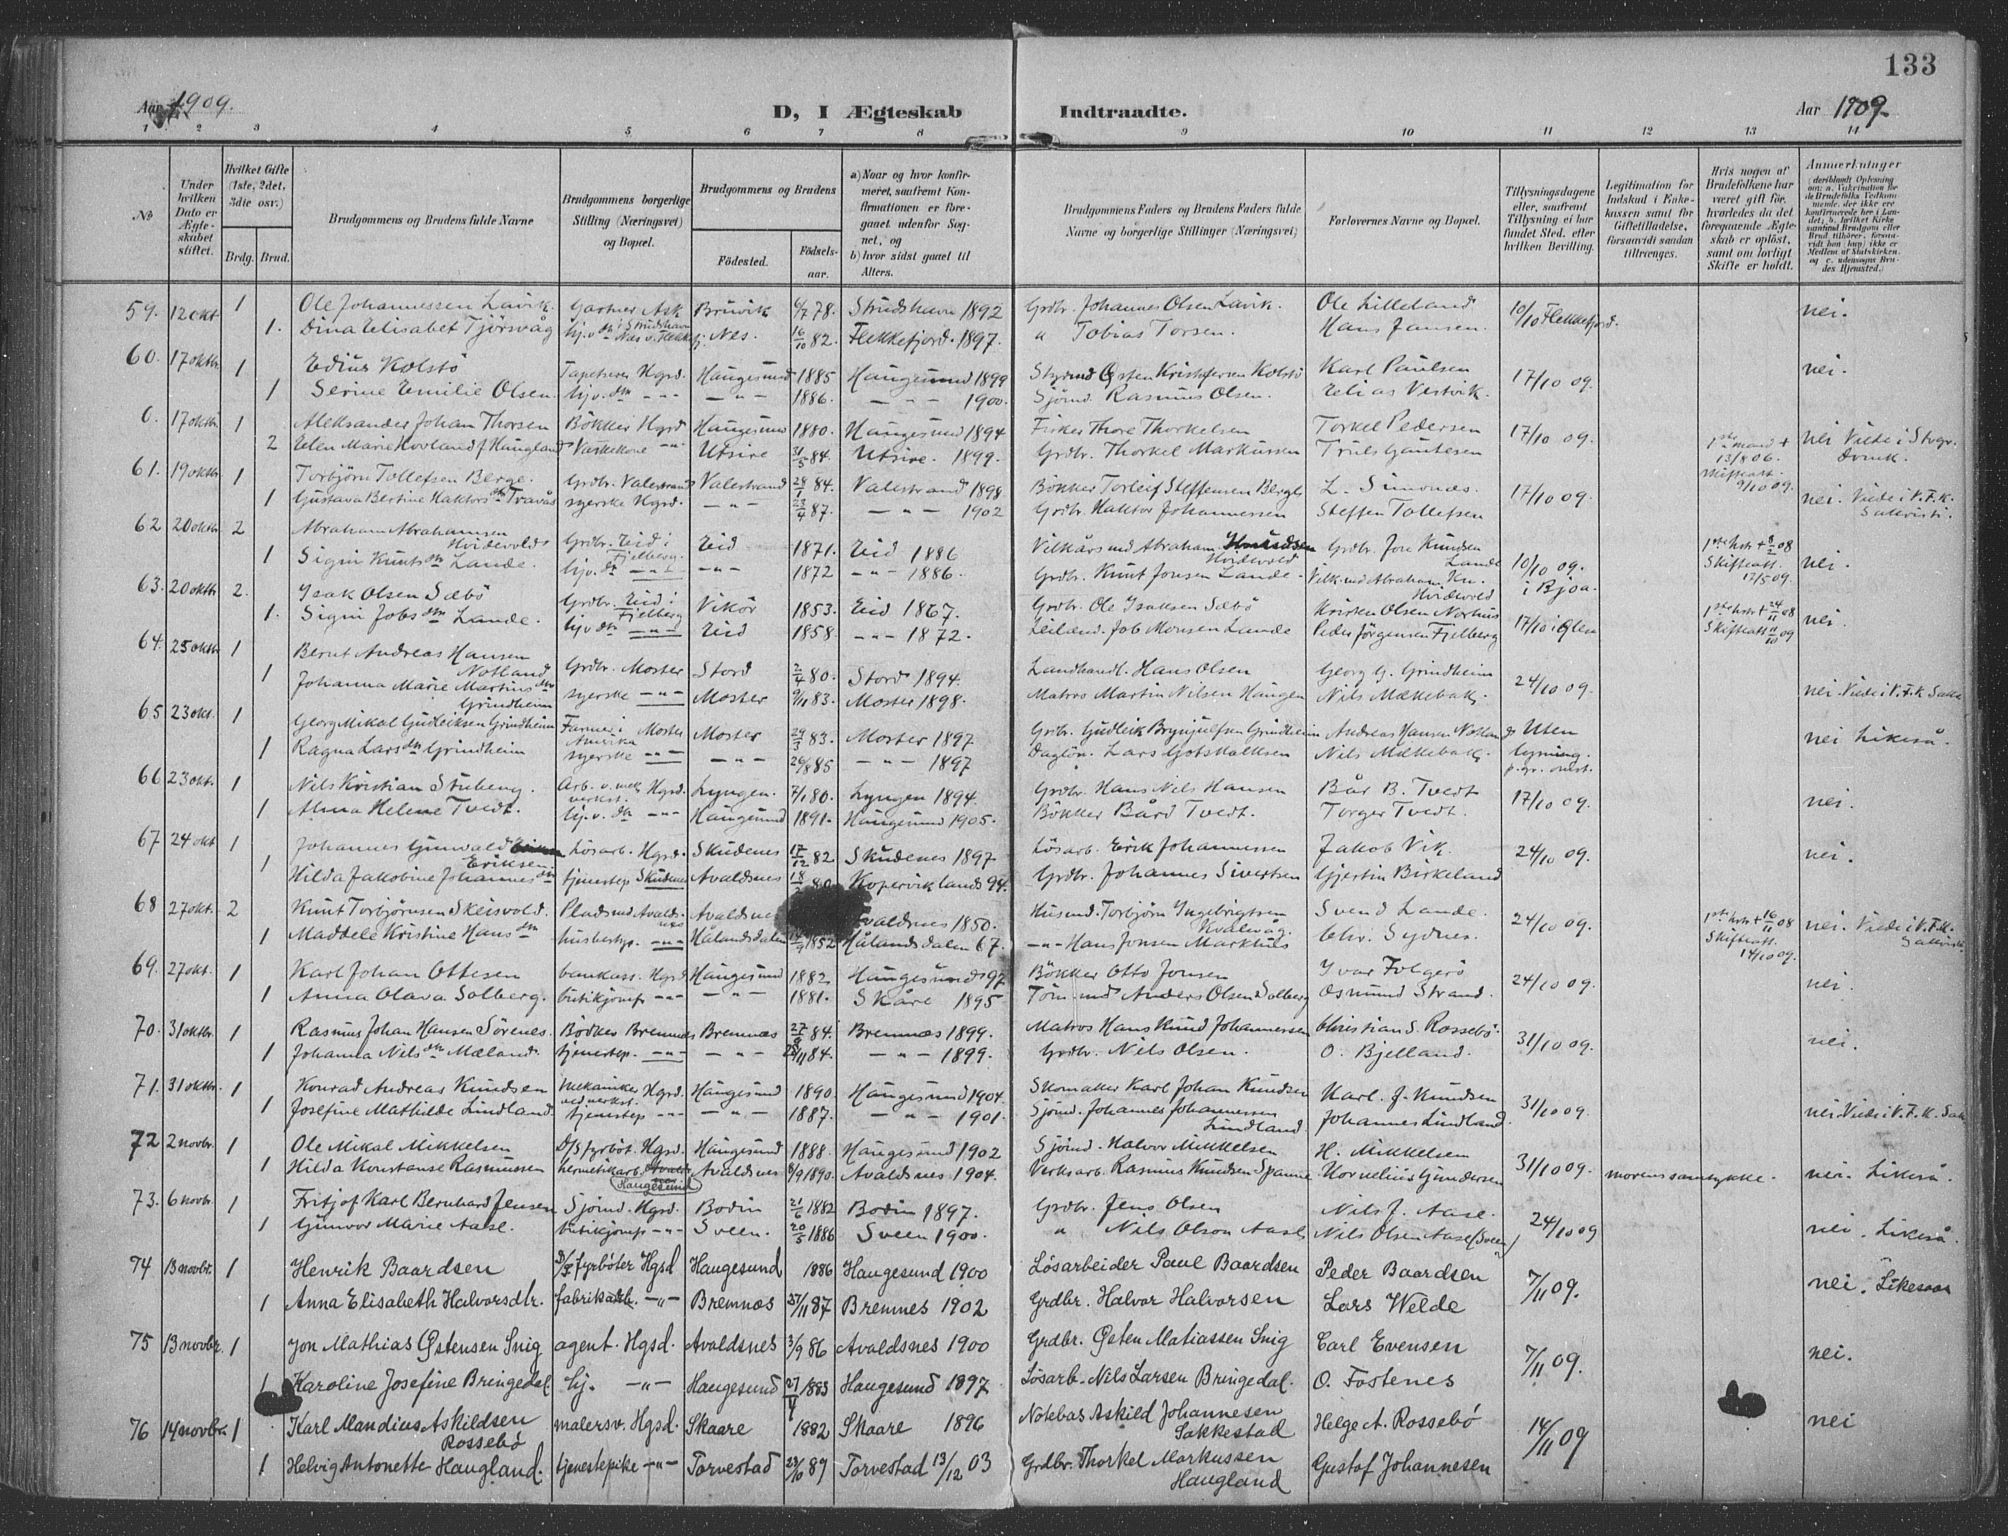 133
Aar 1909.
D, I Ægteskab Indtraadte.
Aar 1909.
1 2 3 4 5 6 7 8 9 10 11 12 13 14
No
Under hvilken Dato er Ægteskabet stiftet.
Hvilket Gifte (1ste, 2det, 3die osv.)
Brdg. Brud.
Brudgommens og Brudens fulde Navne
Brudgommens borgerlige Stilling (Næringsvei) og Bopæl.
Brudgommens og Brudens
Födested. Födselsaar.
a) Naar og hvor konfirmeret, saafremt Konfirmationen er foregaaet udenfor Sognet, og
b) hvor sidst gaaet til Alters.
Brudgommens Faders og Brudens Faders fulde Navne og borgerlige Stillinger (Næringsvei)
Forlovernes Navne og Bopæl.
Tillysningsdagene eller, saafremt Tillysning ei har fundet Sted, efter hvilken Bevilling.
Legitimation for Indskud i Enkekassen samt for Giftetilladelse, forsaavidt saadan tiltrænges.
Hvis nogen af Brudefolkene har været gift før, hvorledes da det foregaaende Ægteskab er oplöst, samt om lovligt Skifte er holdt.
Anmerkninger
59. 12 okt 1 Ole Johannessen Lavik. Gartner Ask Bruvik 6/7 78. Strudshavn 1892 Grdbr. Johannes Olsen Lavik. Ole Lilleland 10/10 Flekkefjord. nei.
1. Dina Elisabet Tjörsvåg Nes. 16/10 82. Flekkefjord. 1897. " Tobias Torsen. Hans Jansen.
60. 17 oktbr. 1 Edius Kolstö Tapetserer Hgsd. Haugesund 1885 Haugesund 1899 Styrmd Østen Kristofersen Kolstö Karl Paulsen 17/10 09. nei.
1 Serine Emilie Olsen. hj.v. dtr -"- -"- 1886. -"- 1900. Sjömd. Rasmus Olsen. Elias Vestvik.
6. 17 oktbr 1 Aleksander Johan Thorsen Bökker Hgsd Haugesund 1880. Haugesund 1894 Fisker Thore Thorkelsen Torkel Pedersen 17/10 09. nei Viede i Stvgr.
2 Elen Marie Hovland f Haugland Vaskekone -"- Utsire 31/5 84. Utsire. 1899. Grdbr. Thorkel Markussen Truls Gautesen 1ste mand + 13/8 06. Skifteatt. 9/10 09.
61. 19 oktbr. 1 Torbjörn Tollefsen Berge. Grdbr. Valestrand Valestrand 28/1 84. Valestrand 1898 Bökker Torleif Steffensen Berge L. Simonæs. 17/10 09. nei. Viede i V.F.K.
1 Gustava Bertine Haktorsdtr Travås syerske Hgsd. -"- 23/4 87. -"- 1902 Grdbr. Haktor Johannessen Steffen Tollefsen
62 20 oktbr. 2 Abraham Abrahamsen Hvidevolds Grdbr. Eid i Fjelberg. Eid 1871. Eid 1886 Vilkårsmd Abraham Hvidevold Grdbr. Jon Knudsen Lande 10/10 09. i Bjoa. 1ste hstr + 8/2 08 Skifteatt. 17/5 09. nei.
1 Sigri Knutsdtr Lande. hj.v. dtr -"- -"- 1872 -"- 1886. Grdbr. Knut Jonsen Lande. Vilk.md Abraham Kn. Hvidevold
63. 20 oktbr 2. Isak Olsen Sæbö Grdbr. Eid i Fjelberg Vikör 1853. Eid 1867. Grdbr. Ole Isaksen Sæbö Kristen Olsen Norhus 17/10 i Ølen 1ste hstr + 24/11 08 Skifteatt 11/10 09 nei.
1. Sigri Jobsdtr Lande. hj.v dtr -"- Eid 1858. -"- 1872. Leilænd. Job Monsen Lande Peder Jörgensen Fjelberg
64. 25 oktbr 1 Bernt Andreas Hansen Notland Grdbr. Moster Stord 2/4 80. Stord 1894. Landhandl. Hans Olsen Georg G. Grindheim 24/10 09.
1 Johanna Marie Martinsdtr Grindheim syerske -"- Moster 9/11 83. Moster 1898. Matros Martin Nilsen Haugen Nils Mækebak. nei. Viede i V.F.K
65 23 okt. 1 Georg Mikal Gudleiksen Grindheim Farmer i Amerika Moster Moster 29/3 83. Moster 1897 Grbr. Gudleik Brynjulfsen Grindheim Andreas Hansen Notland Uten lysning nei Likeså.
1 Ragna Larsdtr Grindheim syerske -"- -"- 26/8 85 -"- 1897 Daglön. Lars Gotskalksen Nils Mækebak.
66 23 okt. 1 Nils Kristian Stuberg. Arb. v. mek. verkst. Hgsd. Lyngen. 7/1 80. Lyngen 1894. Grdbr. Hans Nils Hansen Bår B. Tvedt 17/10 09. nei.
1 Alma Helene Tvedt. hj.v. dtr -"- Haugesund 1891. Haugesund 1905. Bökker Bård Tvedt. Torger Tvedt.
67 24 okt 1 Johannes Gunvald Eriksen Lösarb. Hgsd. Skudenes 17/12 82 Skudenes 1897 Lösarb. Erik Johannessen Jakob Vik. 24/10 09. nei.
1 Hilda Jakobine Johannesdtr tjenestep Skudenes Avaldsnes 18/ 80 Kopervik lands 94. Grdbr. Johannes Sivertsen Gjertin Birkeland
68 27 okt. 2 Knut Torbjörnsen Skeisvold. Pladsmd Avaldsnes Avaldsnes Avaldsnes 1850. Husmd. Torbjörn Ingebrigtsen Kvalevåg. Svend Lande. 24/10 09. 1ste hstr + 16/11 08 Skifteatt. 14/10 09. nei. Viede i V.F.K.
1 Maddele Kristine Hansdtr husbestyr. -"- Hålandsdalen 1852 Hålandsdalen 67. -"- Hans Jonsen Markhus Chr. Sydnes.
69. 27 okt. 1 Karl Johan Ottesen bankass. Hgsd Haugesund 1882 Haugesund 97. Bökker Otto Jonsen Ivar Folgerö 24/10 09. nei.
1 Anna Olava Solberg. butikjomfr -"- -"- 1881. Skåre 1895 Töm.md Anders Olsen Solberg Osmund Strand.
70. 31 oktbr. 1 Rasmus Johan Hansen Sörenes. Bödker Bremnes Bremnæs 27/ 84. Bremnæs 1899. Matros Hans Knud Johannessen Christian S. Rossebö. 31/10 09. nei.
1 Johanna Nilsdtr Mæland. tjenestep. -"- -"- 28/11 84. -"- 1899. Grdbr. Nils Olsen. O. Bjelland.
71. 31 oktbr. 1 Konrad Andreas Knudsen Mekaniker ved verkst. Hgsd. Haugesund 1890. Haugesund 1904. Skomaker Karl Johan Knudsen Karl. J. Knudsen 31/10 09.
1 Josefine Mathilde Lindland. tjenestep -"- -"- 1887. -"- 1901. Sjömd. Johannes Johannessen Lindland. Johannes Lindland. nei Viede i V.F.K.
72 2 novbr. 1 Ole Mikal Mikkelsen D/S fyrböt. Hgsd. Haugesund 1888. Haugesund 1902 Sjömd. Halvor Mikkelsen H. Mikkelsen 31/10 09. morens samtykke. nei. Likeså.
1 Hilda Konstanse Rasmussen hermetikarb. Haugesund Avaldsnes 8/9 1890. Avaldsnes 1904. Verksarb. Rasmus Knudsen Spanne Kornelius Gundersen
73. 6 novbr. 1 Fritjof Karl Bernhard Jensen Sjömd. Hgsd. Bodin 21/6 1882 Bodin 1897. Grdbr. Jens Olsen Nils J. Aase. 24/10 09
1 Gunvor Marie Aase. butikjomfr -"- Sveen. 20/5 1886 Sveen 1900. " Nils Olson Aase Nils Olsen Aase (Sveen) nei. Likeså.
74 13 novbr. 1 Henrik Baardsen D/S fyrböter Hgsd Haugesund 1886 Haugesund 1900 Lösarbeider Paul Baardsen Peder Baardsen 7/11 09. nei. Likesaa
1 Anna Elisabeth Halvorsdtr. fabrikarb. -"- Bremnæs 27/11 87 Bremnes 1902 Grdbr. Halvor Halvorsen Lars Welde
75 13 novbr. 1 Jon Mathias Østensen Snig agent. Hgsd. Avaldsnes 3/9 86 Avaldsnes 1900 Grdbr. Østen Matiassen Snig Carl Evensen 7/11 09. nei.
1 Karoline Josefine Bringedal hj. -"- Haugesund 27/4 1883 Haugesund 1897 Lösarb. Nils Larsen Bringedal. O. Fostenes
76 14 novbr. 1 Karl Mandius Askildsen Rossebö malersv. Hgsd. Skaare 1882 Skaare 1896 Notebas Askild Johannesen Sakkestad Helge A. Rossebö 14/11 09 nei
1 Helvig Antonette Haugland. tjenestepike -"- Torvestad 89 Torvestad 13/12 03 Grdbr. Thorkel Markussen Haugland Gustaf Johannesen